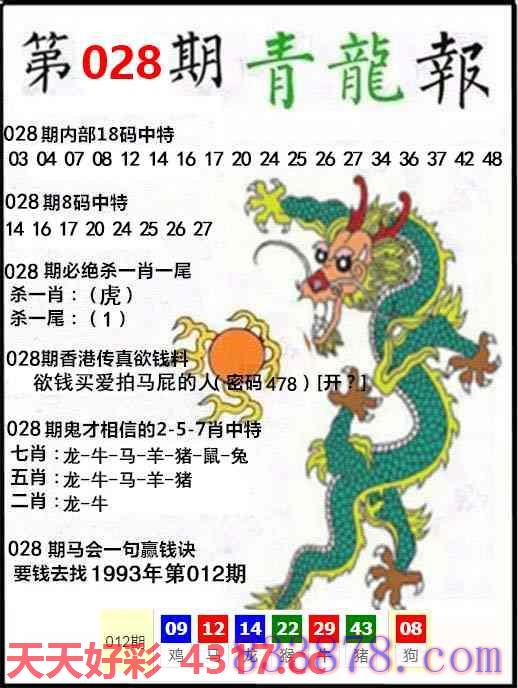 第028期青龍報
028期内部18码中特
03 04 07 08 12 14 16 17 20 24 25 26 27 34 36 37 42 48
028期8码中特
14 16 17 20 24 25 26 27
028 期必绝杀一肖一尾
杀一肖：（虎）
杀一尾：（1）
028期香港传真欲钱料
欲钱买爱拍马屁的人(密码478)[开？]
028期鬼才相信的2-5-7肖中特
七肖：龙-牛-马-羊-猪-鼠-兔
五肖：龙-牛-马-羊-猪
二肖：龙-牛
028 期马会一句赢钱诀
要钱去找1993年第012期
012期 09 12 14 22 29 43 08
鸡 马 龙 猴 牛 猪 狗
天天好彩 4317.cc